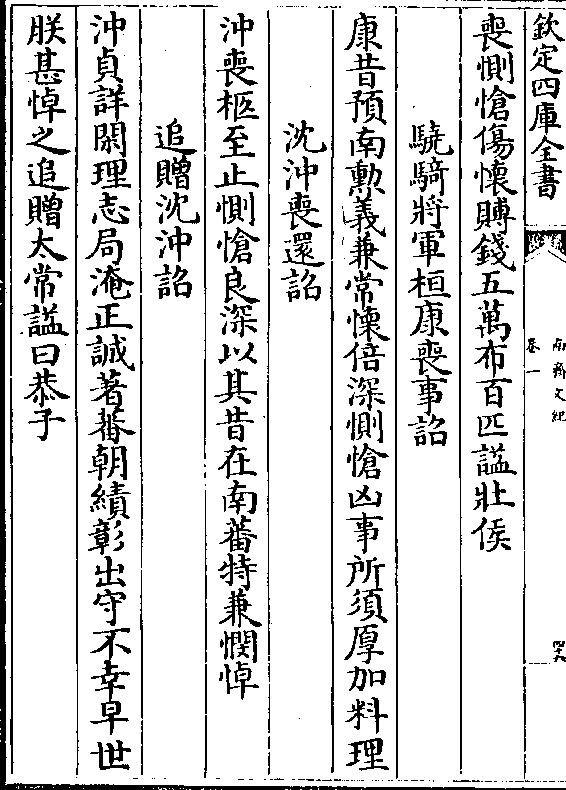 欽定四庫全書
南齊文紀
卷一
喪惻愴傷懷賻錢五萬布百匹諡壯侯
驍騎將軍桓康喪事詔
康昔預南勲義兼常懷倍深惻愴凶事所須厚加料理
沈沖喪還詔
沖喪柩至止惻愴良深以其昔在南蕃特兼憫悼
追贈沈沖詔
沖貞詳閑理志局淹正誠著蕃朝績彰出守不幸早世
朕甚悼之追贈太常諡曰恭子